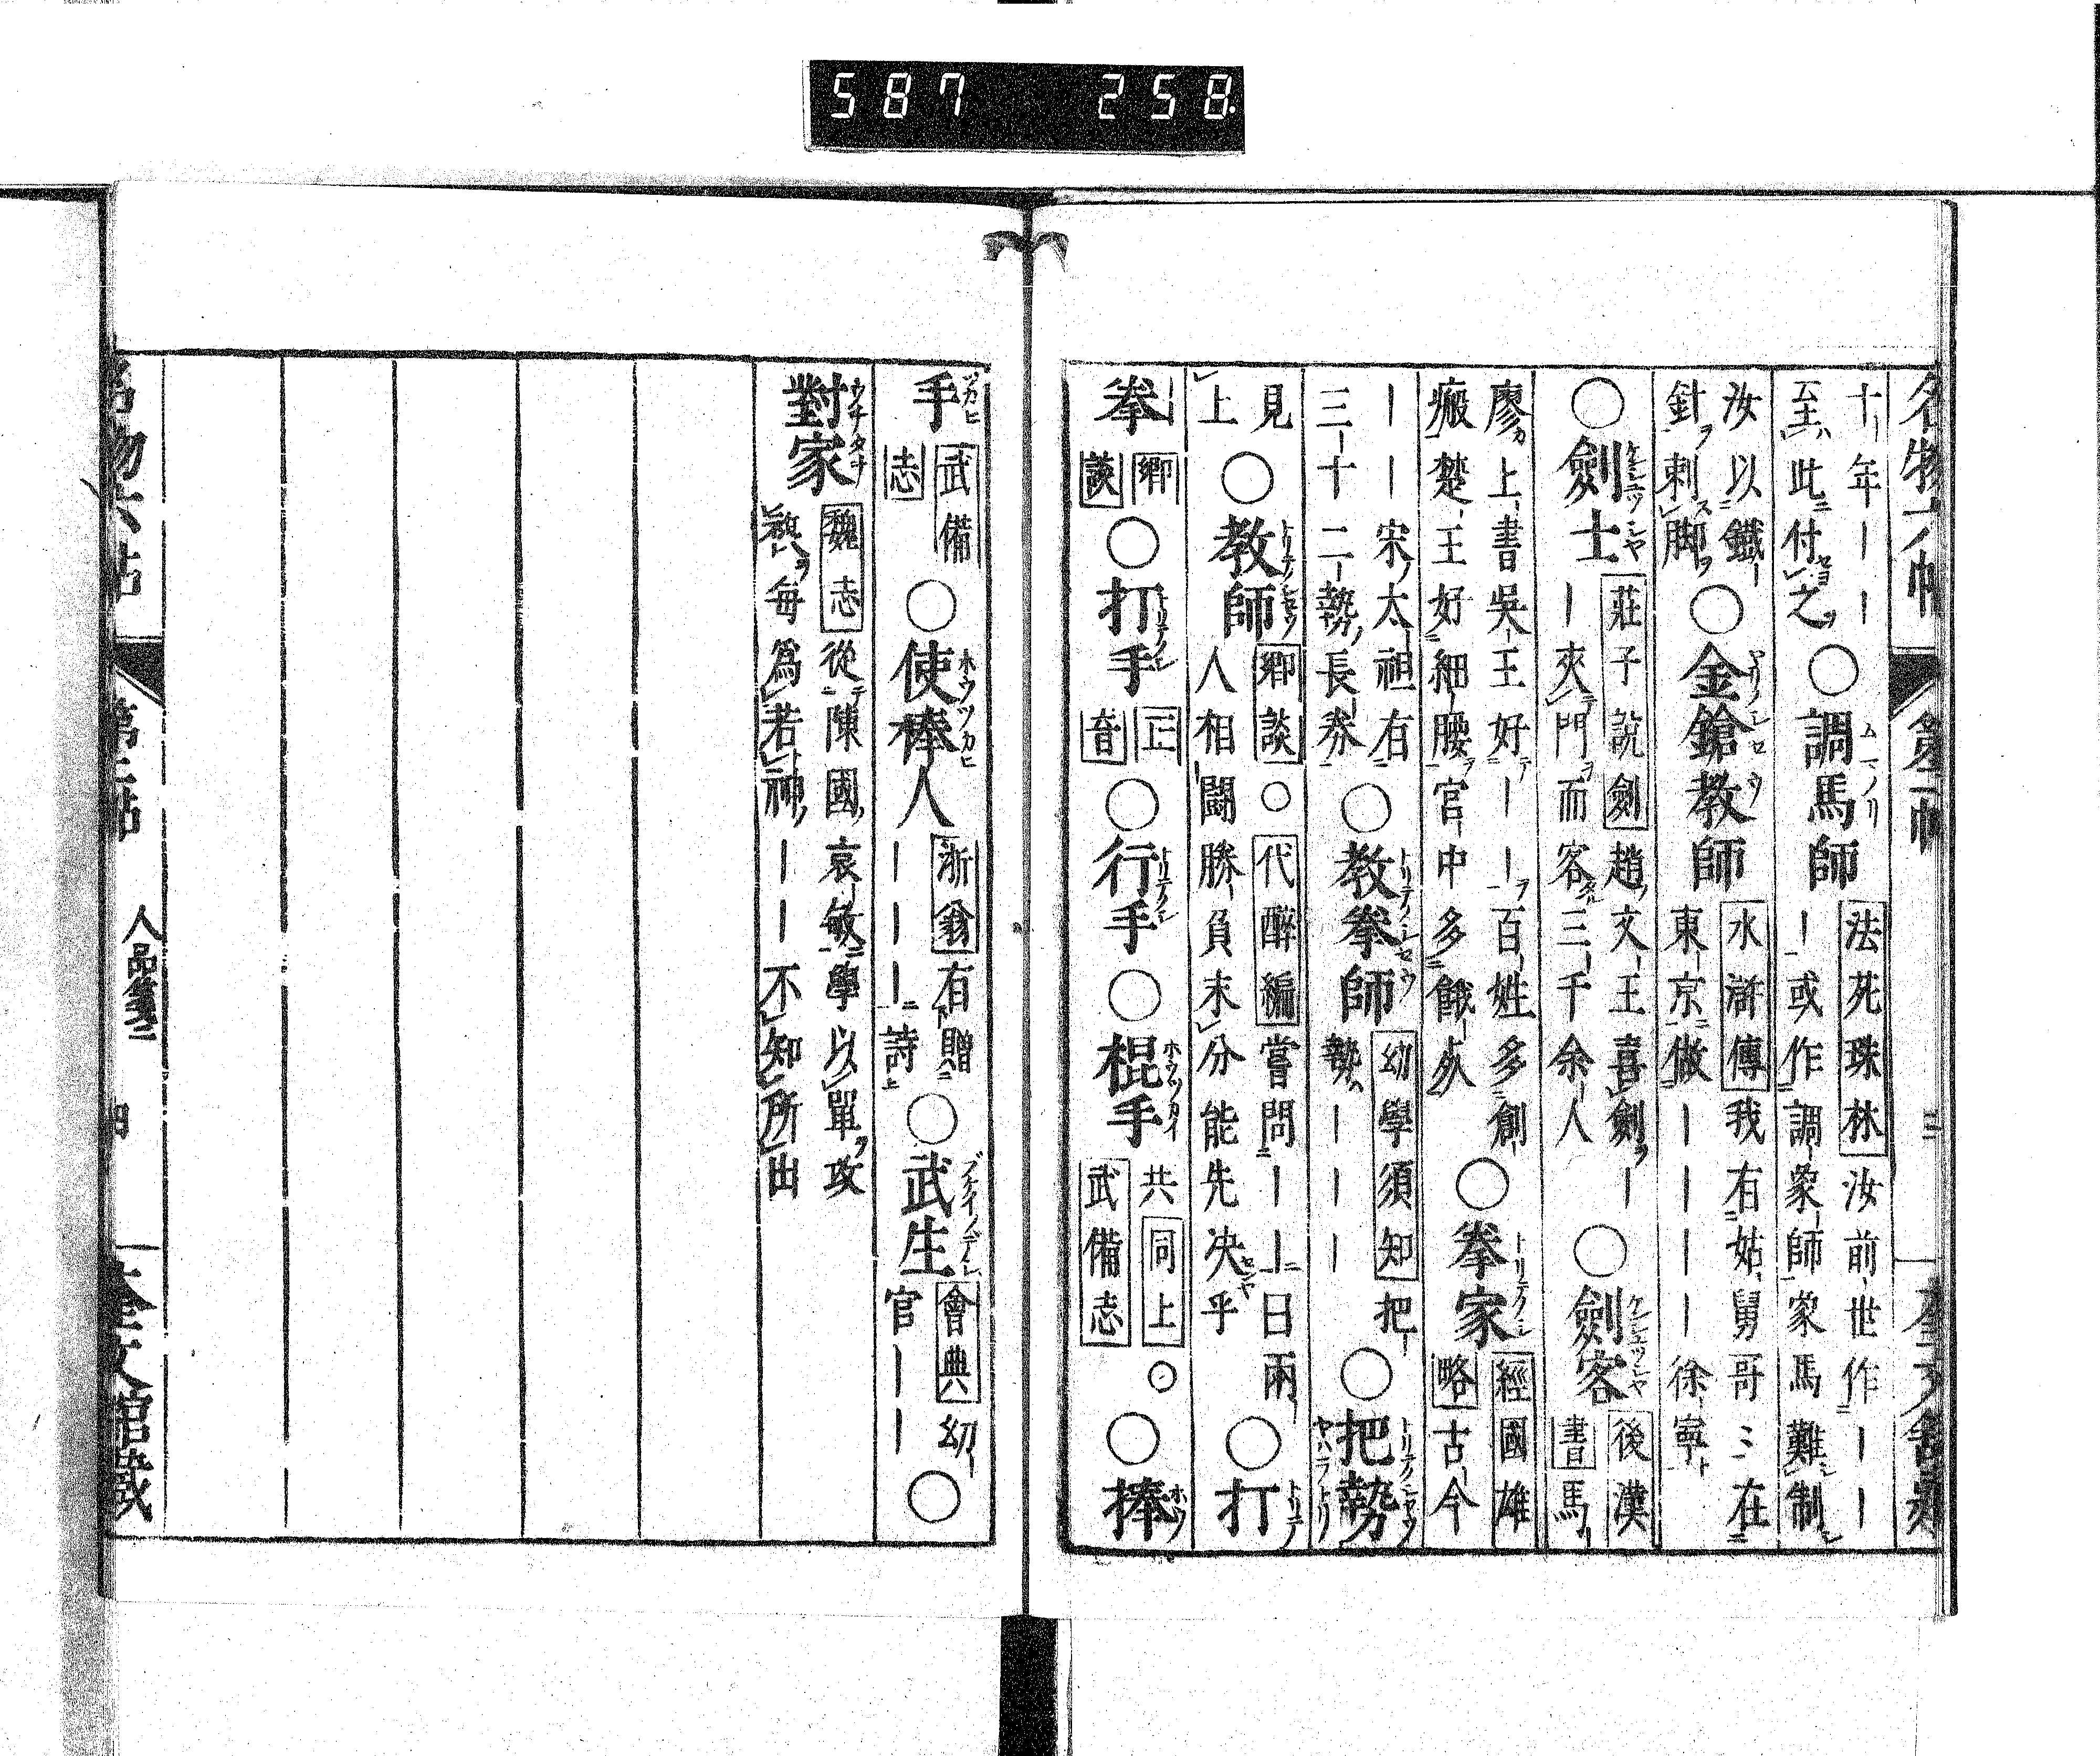 587 258
十年｜｜
至此付之
○調馬師
法苑珠林 汝前世作｜｜
｜或作調象師象馬難制
汝以鐵
針刺脚
○金鎗教師
水滸傳 我有姑舅哥〻在
東京做｜｜｜｜徐寧
○劍士
莊子說劍 趙文王喜劍｜
｜夾門而客三千余人
○劍客
後漢
書 馬
廖上書吳王好｜｜百姓多創
瘢楚王好細腰官中多餓
○拳家
經國雄
略 古今
｜｜宋太祖有
三十二勢長拳
○教拳師
幼學須知 把
勢｜｜｜
○把勢
見
上
○教師
鄉談○代醉編 嘗問｜｜曰兩
人相鬪勝負未分能先决乎
○打
拳
鄉
談
○打手
正
音
○行手○棍手
共同上○
武備志
○捧
手
武備
志
○使棒人
浙翁 有贈
｜｜｜詩
○武生
會典 幼
官｜｜
○
對家
魏志 從陳國袁敏學以單攻
複每爲若神｜｜不知所出
名物六帖 第二帖 人品箋二 四 奎文館藏